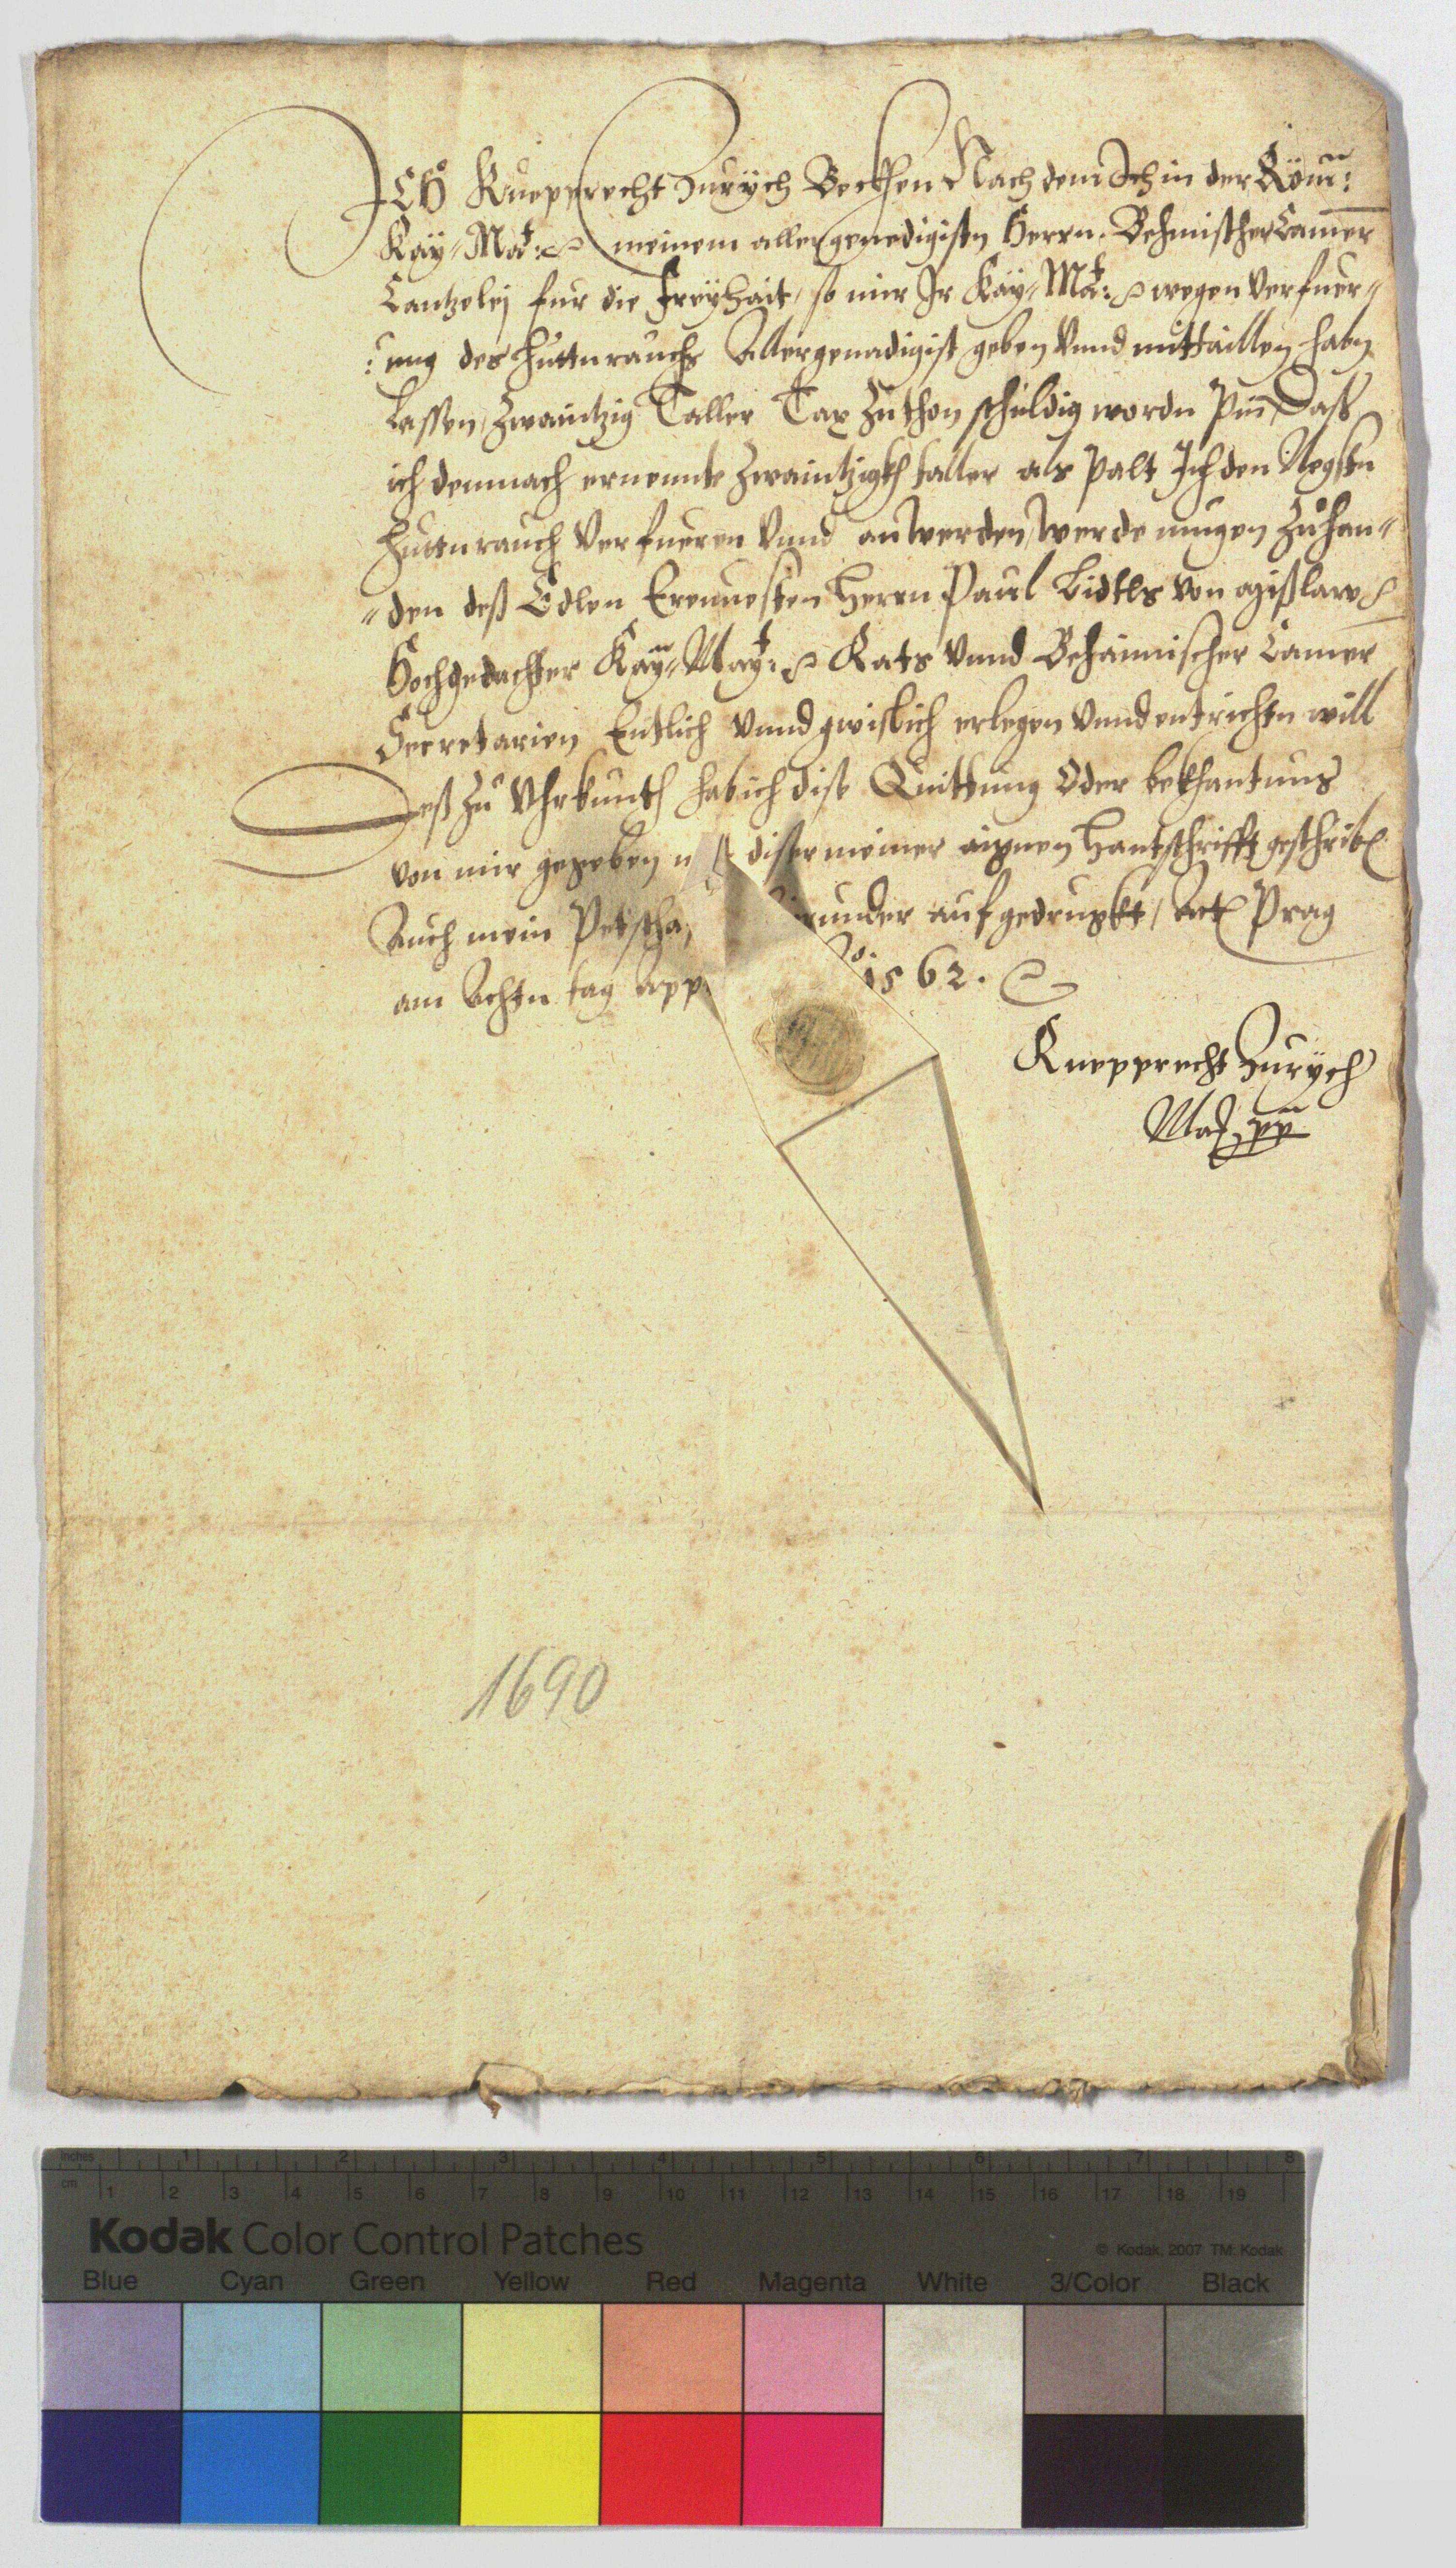 ICH Ruepprecht Zurÿch Bekhen Nach dem Ich in der Röm:
Kay: Mat: meinem allergenedigisten Herrn. Behmischer Camer
Cantzelej fur die Freÿhait, so mir Ir Kaÿ: Mat: wegen Verfuer-
:ung des huttnrauchs Allergenadigist geben Vnnd mittaillen habn
Lassen, Zwaintzig Taller Tax Zuthon schuldig wordn pin, Daß
ich demnach ernennte Zwaintzigkh taller als palt Ich den Negstn
huttnrauch Verfueren Vnnd anwerden, werde mugen Zuhan-
-den deß Edlen Ernuesten Herrn Paul Lidtls von
Hochgedachter Kaÿ: Maÿt: Rats Vnnd Behaimischer Camer
Secretarien Entlich Vnnd gwislich erlegen Vnnd entrichtn will
Deß zu Vhrkunth hab ich dise Quittung Oder bekhantnus
von mir gegeben mit diser meiner aignen Hantschrifft geschribn
Auch mein Petscha hierunder aufgedruckht, Act Prag
am Achtn tag App 1562.
Ruepprecht Zurÿch
1690
inches 1 2 3 4 5 6 7 8
cm 1 2 3 4 5 6 7 8 9 10 11 12 13 14 15 16 17 18 19
Kodak Color Control Patches
© Kodak, 2007 TM: Kodak
Blue Cyan Green Yellow Red Magenta White 3/Color Black